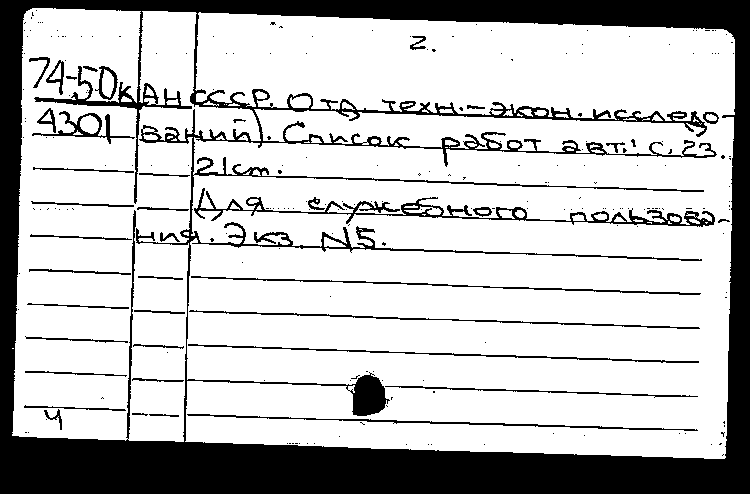 2.
74-50к АН СССР. Отд. техн.-экон. исследо-
4301 ваний). Список работ авт.: с. 23.
21cm.
Для служебного пользова-
ния. Экз. N5.
4